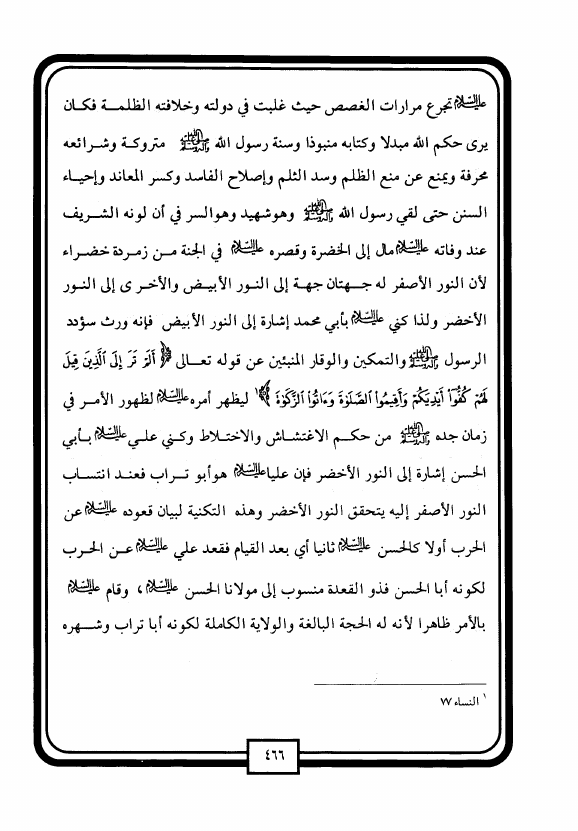 عليه السلام تجرع مرارات الغصص حيث غلبت في دولته وخلافته الظلمة فكان
يرى حكم الله مبدلا وكتابه منبوذا وسنة رسول الله ﷺ متروكة وشرائعه
محرفة ويمنع عن منع الظلم وسد الثلم وإصلاح الفاسد وكسر المعاند وإحياء
السنن حتى لقي رسول الله ﷺ وهوشهيد وهوالسر في أن لونه الشريف
عند وفاته عليه السلام مال إلى الخضرة وقصره عليه السلام في الجنة من زمردة خضراء
لأن النور الأصفر له جهتان جهة إلى النور الأبيض والأخرى إلى النور
الأخضر ولذا كني عليه السلام بأبي محمد إشارة إلى النور الأبيض فإنه ورث سؤدد
الرسول ﷺ والتمكين والوقار المنبئين عن قوله تعالى ﴿ أَلَمْ تَرَ إِلَى الَّذِينَ قِيلَ
لَهُمْ كُفُّوٓا۟ أَيْدِيَكُمْ وَأَقِيمُوا۟ الصَّلَوٰةَ وَءَاتُوا۟ الزَّكَوٰةَ ﴾ ١ ليظهر أمره عليه السلام لظهور الأمر في
زمان جده ﷺ من حكم الاغتشاش والاختلاط وكني علي عليه السلام بأبي
الحسن إشارة إلى النور الأخضر فإن عليا عليه السلام هوأبو تراب فعند انتساب
النور الأصفر إليه يتحقق النور الأخضر وهذه التكنية لبيان قعوده عليه السلام عن
الحرب أولا كالحسن عليه السلام ثانيا أي بعد القيام فقعد علي عليه السلام عن الحرب
لكونه أبا الحسن فذو القعدة منسوب إلى مولانا الحسن عليه السلام، وقام عليه السلام
بالأمر ظاهرا لأنه له الحجة البالغة والولاية الكاملة لكونه أبا تراب وشهره
١ النساء ٧٧
٤٦٦